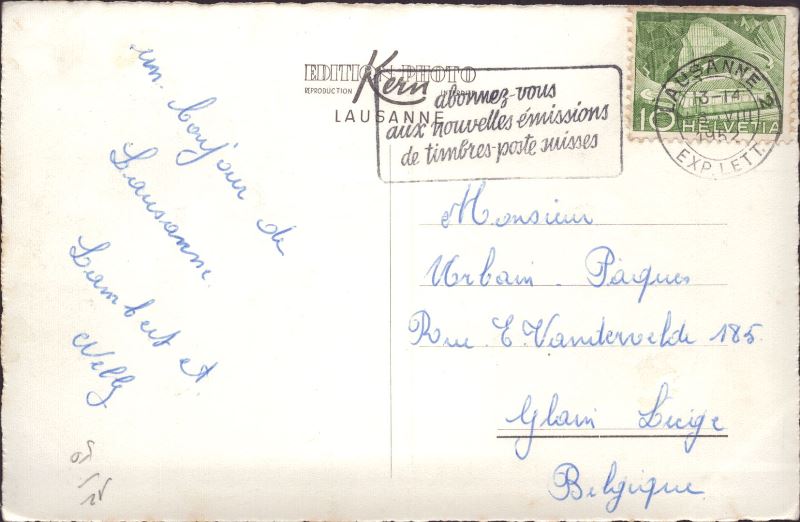 un bonjour de
Lausanne
Lambert et
Nelly
EDITION PHOTO
REPRODUCTION
Kern
LAUSANNE
abonnez-vous
aux nouvelles émissions
de timbres-poste suisses
10 HELVETIA
LAUSANNE 2
13-14
VIII
195
EXP. LETT.
Monsieur
Urbain Pâques
Rue E. Vandervelde 185.
Glain Liège
Belgique